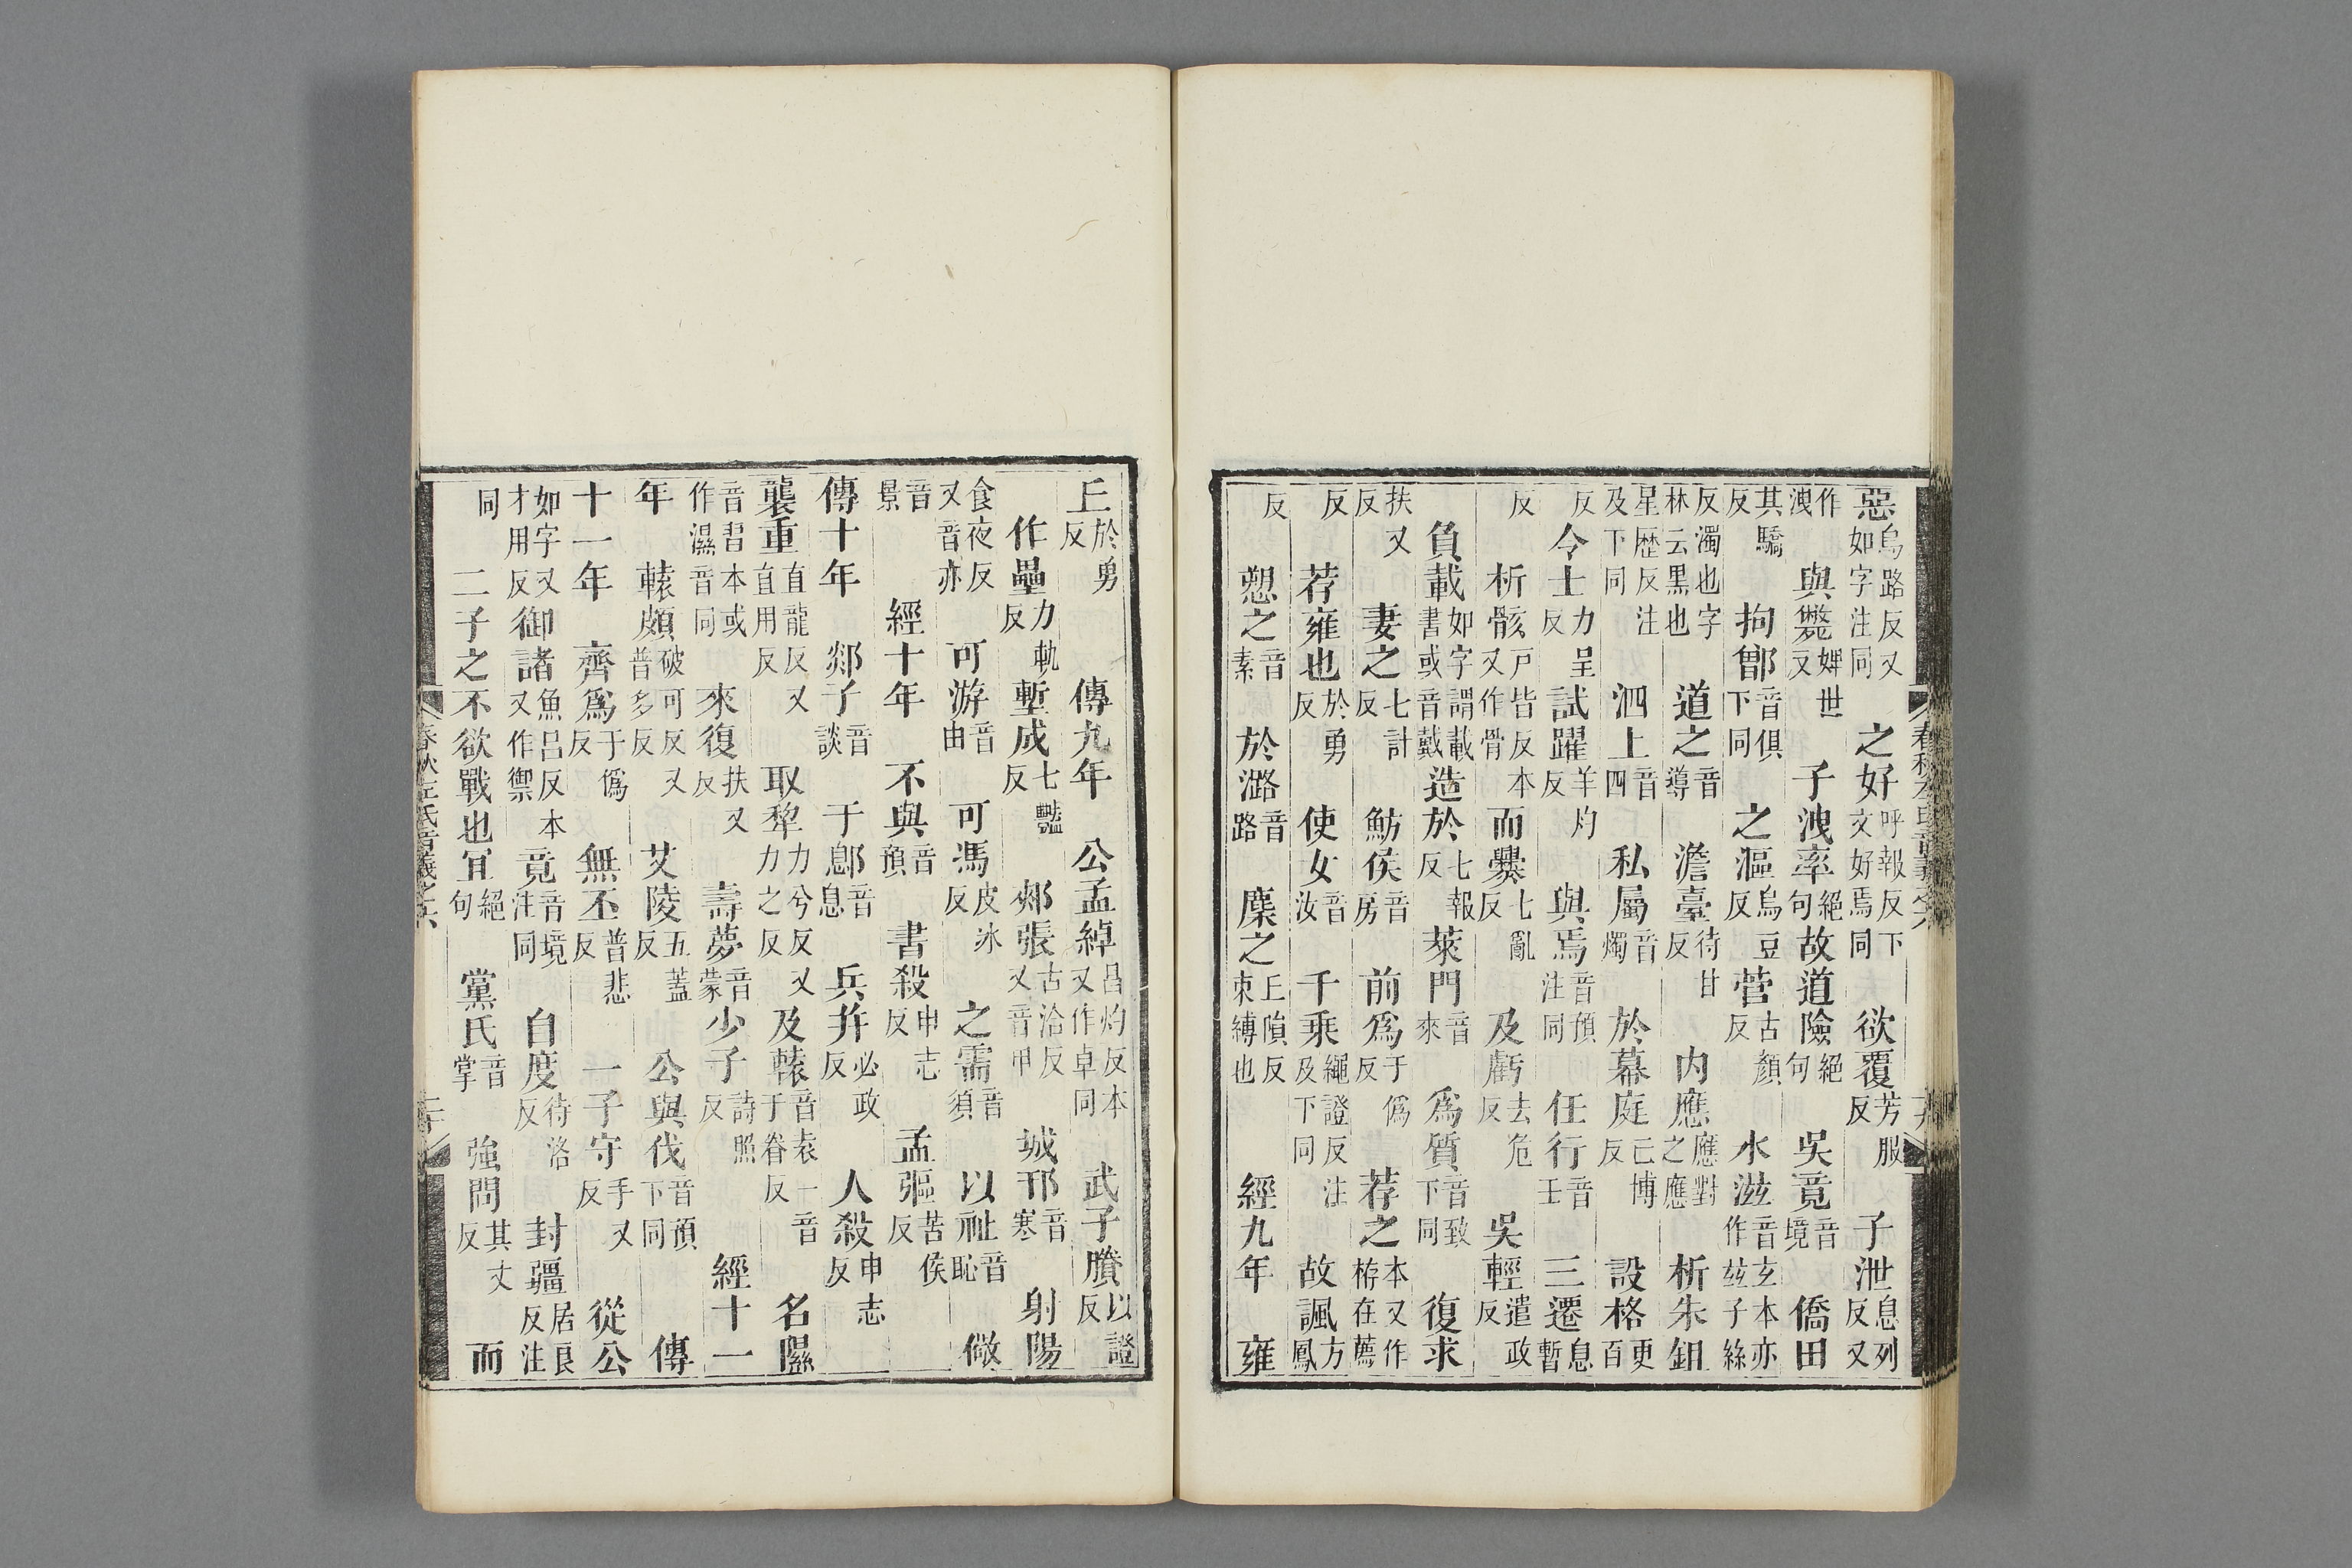 惡烏路反又如字注同 之好呼報反下文好焉同 欲覆芳服反 子泄息列反又
作洩 與斃婢世反 子洩率絕句 故道險絕句 吳竟音境 僑田
其驕反 拘鄫音俱下同 之漚烏豆反 菅古顏反 水滋音玄本亦作玆子絲
反濁也字林云黑也 道之音導 澹臺待甘反 內應應對之應 析朱鉏
星歷反注及下同 泗上音四 私屬音燭 於幕庭亡博反 設格更百
反 令士力呈反 試躍羊灼反 與焉音預注同 任行音壬 三遷息暫
反 析骸戶皆反本又作骨 而爨七亂反 及虧去危反 吳輕遣政反
負載如字謂載書或音戴 造於七報反 萊門音來 爲質音致下同 復求
扶又反 妻之七計反 魴侯音房 前爲于僞反 荐之本又作栫在薦
反 荐雍也於勇反 使女音汝 千乘繩證反注及下同 故諷方鳳
反 愬之音素 於潞音路 麇之丘隕反束縛也 經九年 雍
丘於勇反 傳九年 公孟綽昌灼反本又作卓同 武子賸以證反
作壘力軌反 塹成七豔反 郟張古洽反又音甲 城邗音寒 射陽
食夜反又音亦 可游音由 可馮皮冰反 之需音須 以祉音恥 儆
音景 經十年 不與音預 書殺申志反 孟彄苦侯反
傳十年 郯子音談 于鄎音息 兵并必政反 人殺申志反
襲重直龍反又直用反 取犂力兮反又力之反 及轅音袁一音于眷反 名隰
音習本或作濕音同 來復扶又反 壽夢音蒙 少子詩照反 經十一
年 轅頗破可反又普多反 艾陵五蓋反 公與伐音預下同 傳
十一年 齊爲于僞反 無丕普悲反 一子守手又反 從公
如字又才用反 御諸魚呂反本又作禦 竟音境注同 自度待洛反 封疆居良反注
同 二子之不欲戰也宜絕句 黨氏音掌 強問其丈反 而